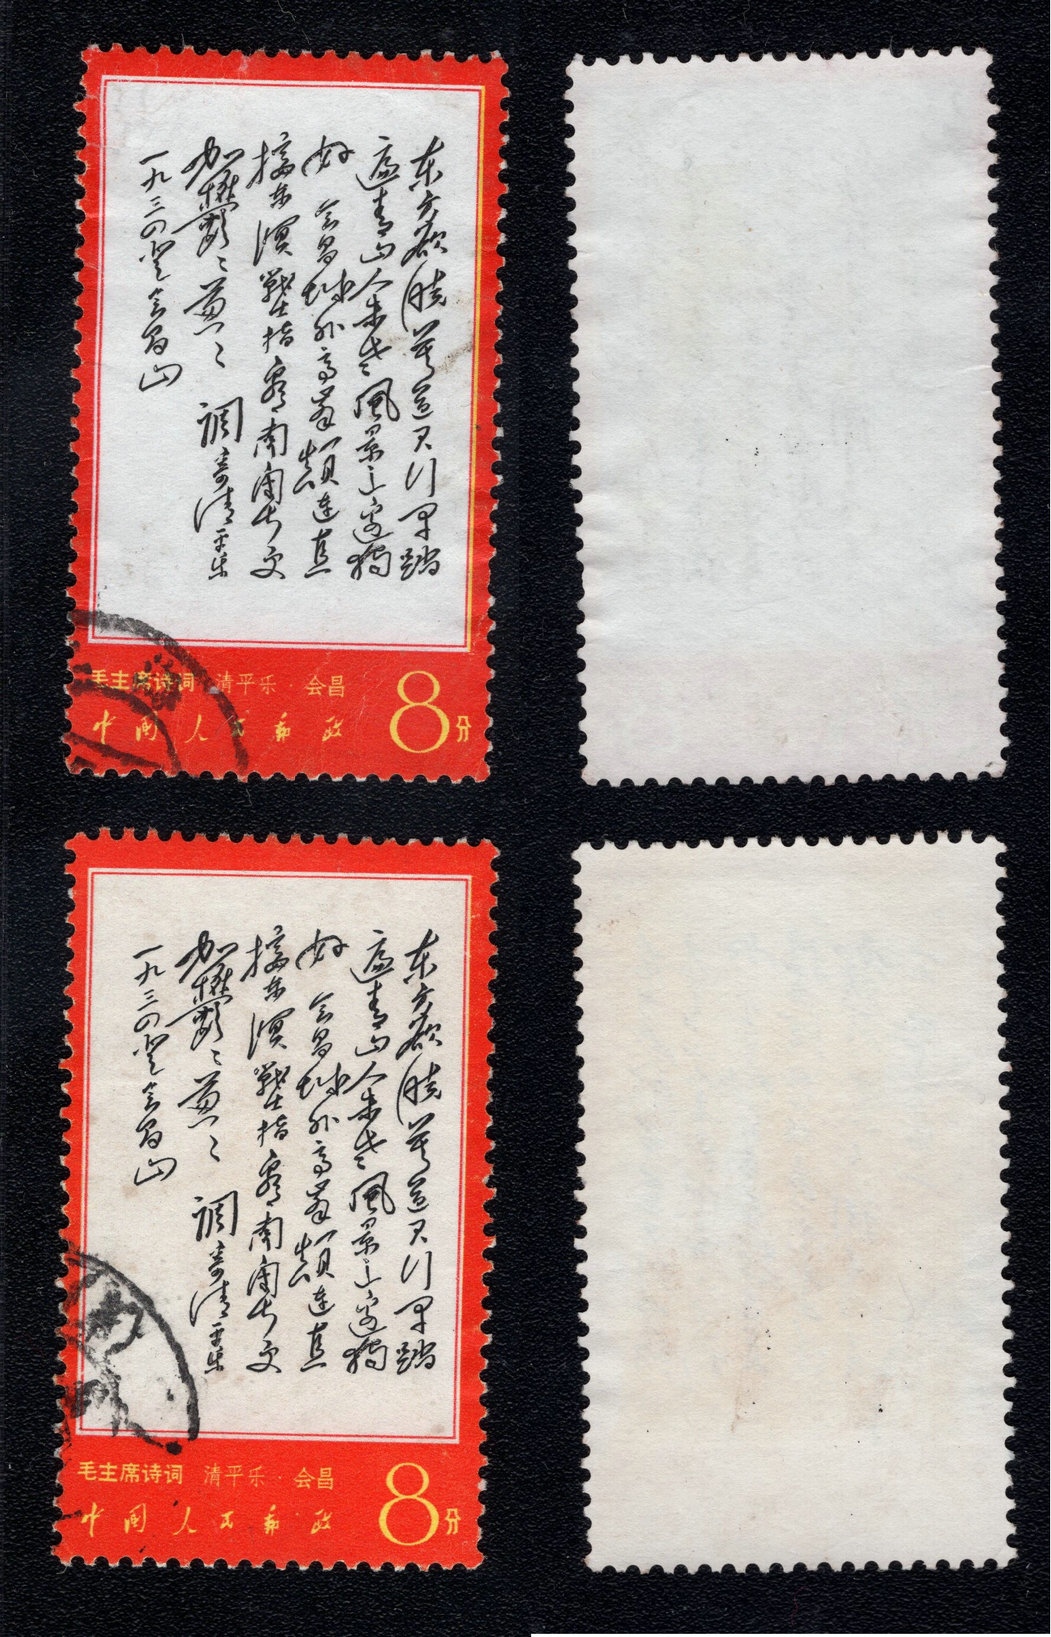 东方欲晓莫道君行早踏
遍青山人未老風景这边独
好 会昌城外高峯颠连直
接东溟戰士指看南粤更
加鬱々葱々 调寄清平乐
一九三四登会昌山
毛主席诗词 清平乐·会昌
中国人民邮政 8分
东方欲晓莫道君行早踏
遍青山人未老風景这边独
好 会昌城外高峯颠连直
接东溟戰士指看南粤更
加鬱々葱々 调寄清平乐
一九三四登会昌山
毛主席诗词 清平乐·会昌
中国人民邮政 8分